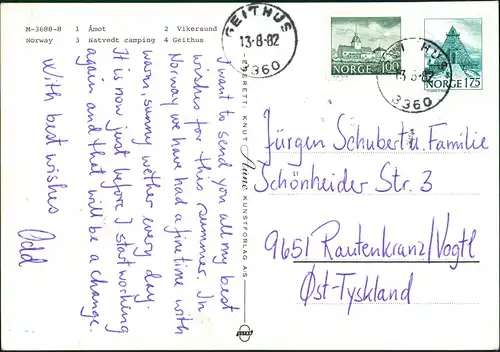 M-3688-8 1 Åmot 2 Vikersund
Norway 3 Natvedt camping 4 Geithus
GEITHUS
13-8-82
3360
NORGE 1.00
NORGE 175
13-8-82
3360
ENERETT: KNUT Aune KUNSTFORLAG A/S
I want to send you all my best
wishes for this summer. In
Norway we have had a fine time with
warm, sunny wether every day.
It is now just before I start working
again and that will be a change.
With best wishes
Odd
Jürgen Schubert u. Familie
Schönheider Str. 3
9651 Rautenkranz/Vogtl
Øst-Tyskland